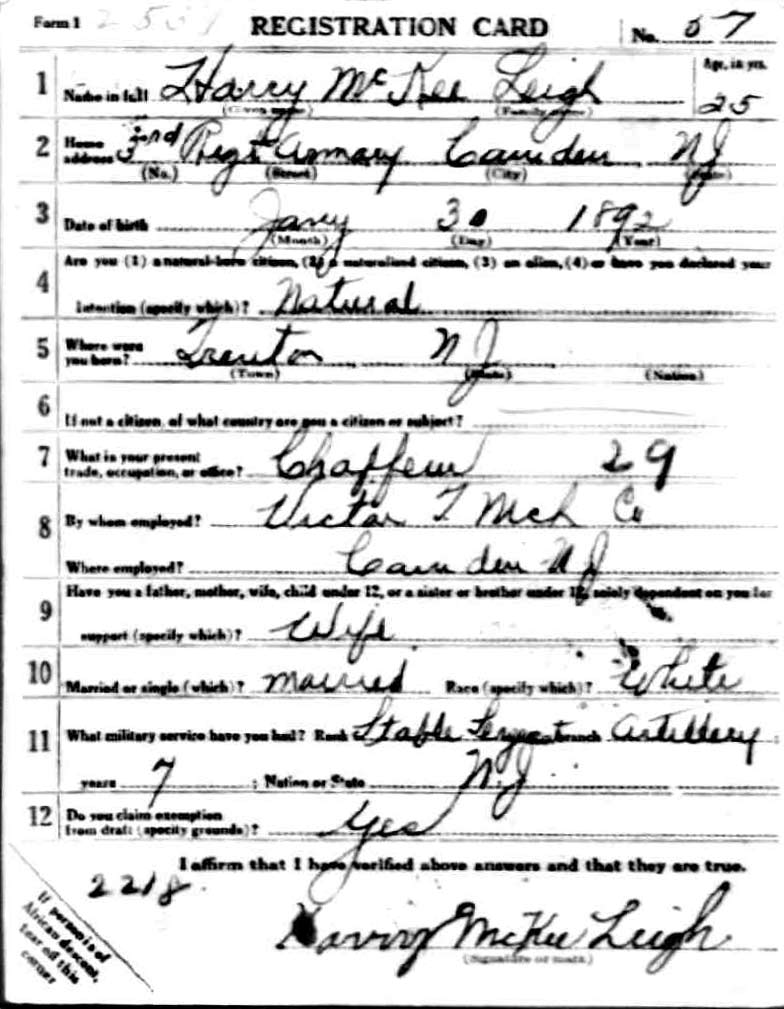 Form 1 REGISTRATION CARD No. 57
1 Name in full Harry McKee Leigh Age, in yrs.
(Given name) (Family name) 25
2 Home address 3rd Regt Armary Camden NJ
(No.) (Street) (City) (State)
3 Date of birth Jany 30 1892
(Month) (Day) (Year)
Are you (1) a natural-born citizen, (2) a naturalized citizen, (3) an alien, (4) or have you declared your
4 intention (specify which)? Natural
5 Where were you born? Trenton NJ
(Town) (State) (Nation)
6 If not a citizen, of what country are you a citizen or subject?
7 What is your present trade, occupation, or office? Chaffeur 29
8 By whom employed? Victor T Mch Co
Where employed? Camden NJ
9 Have you a father, mother, wife, child under 12, or a sister or brother under 12, solely dependent on you for
support (specify which)? Wife
10 Married or single (which)? married Race (specify which)? White
11 What military service have you had? Rank Stable Sergeant branch Artillery ;
years 7 ; Nation or State N.J.
12 Do you claim exemption from draft (specify grounds)? Yes
I affirm that I have verified above answers and that they are true.
2218
Harry McKee Leigh
(Signature or mark)
If person is of
African descent,
tear off this
corner